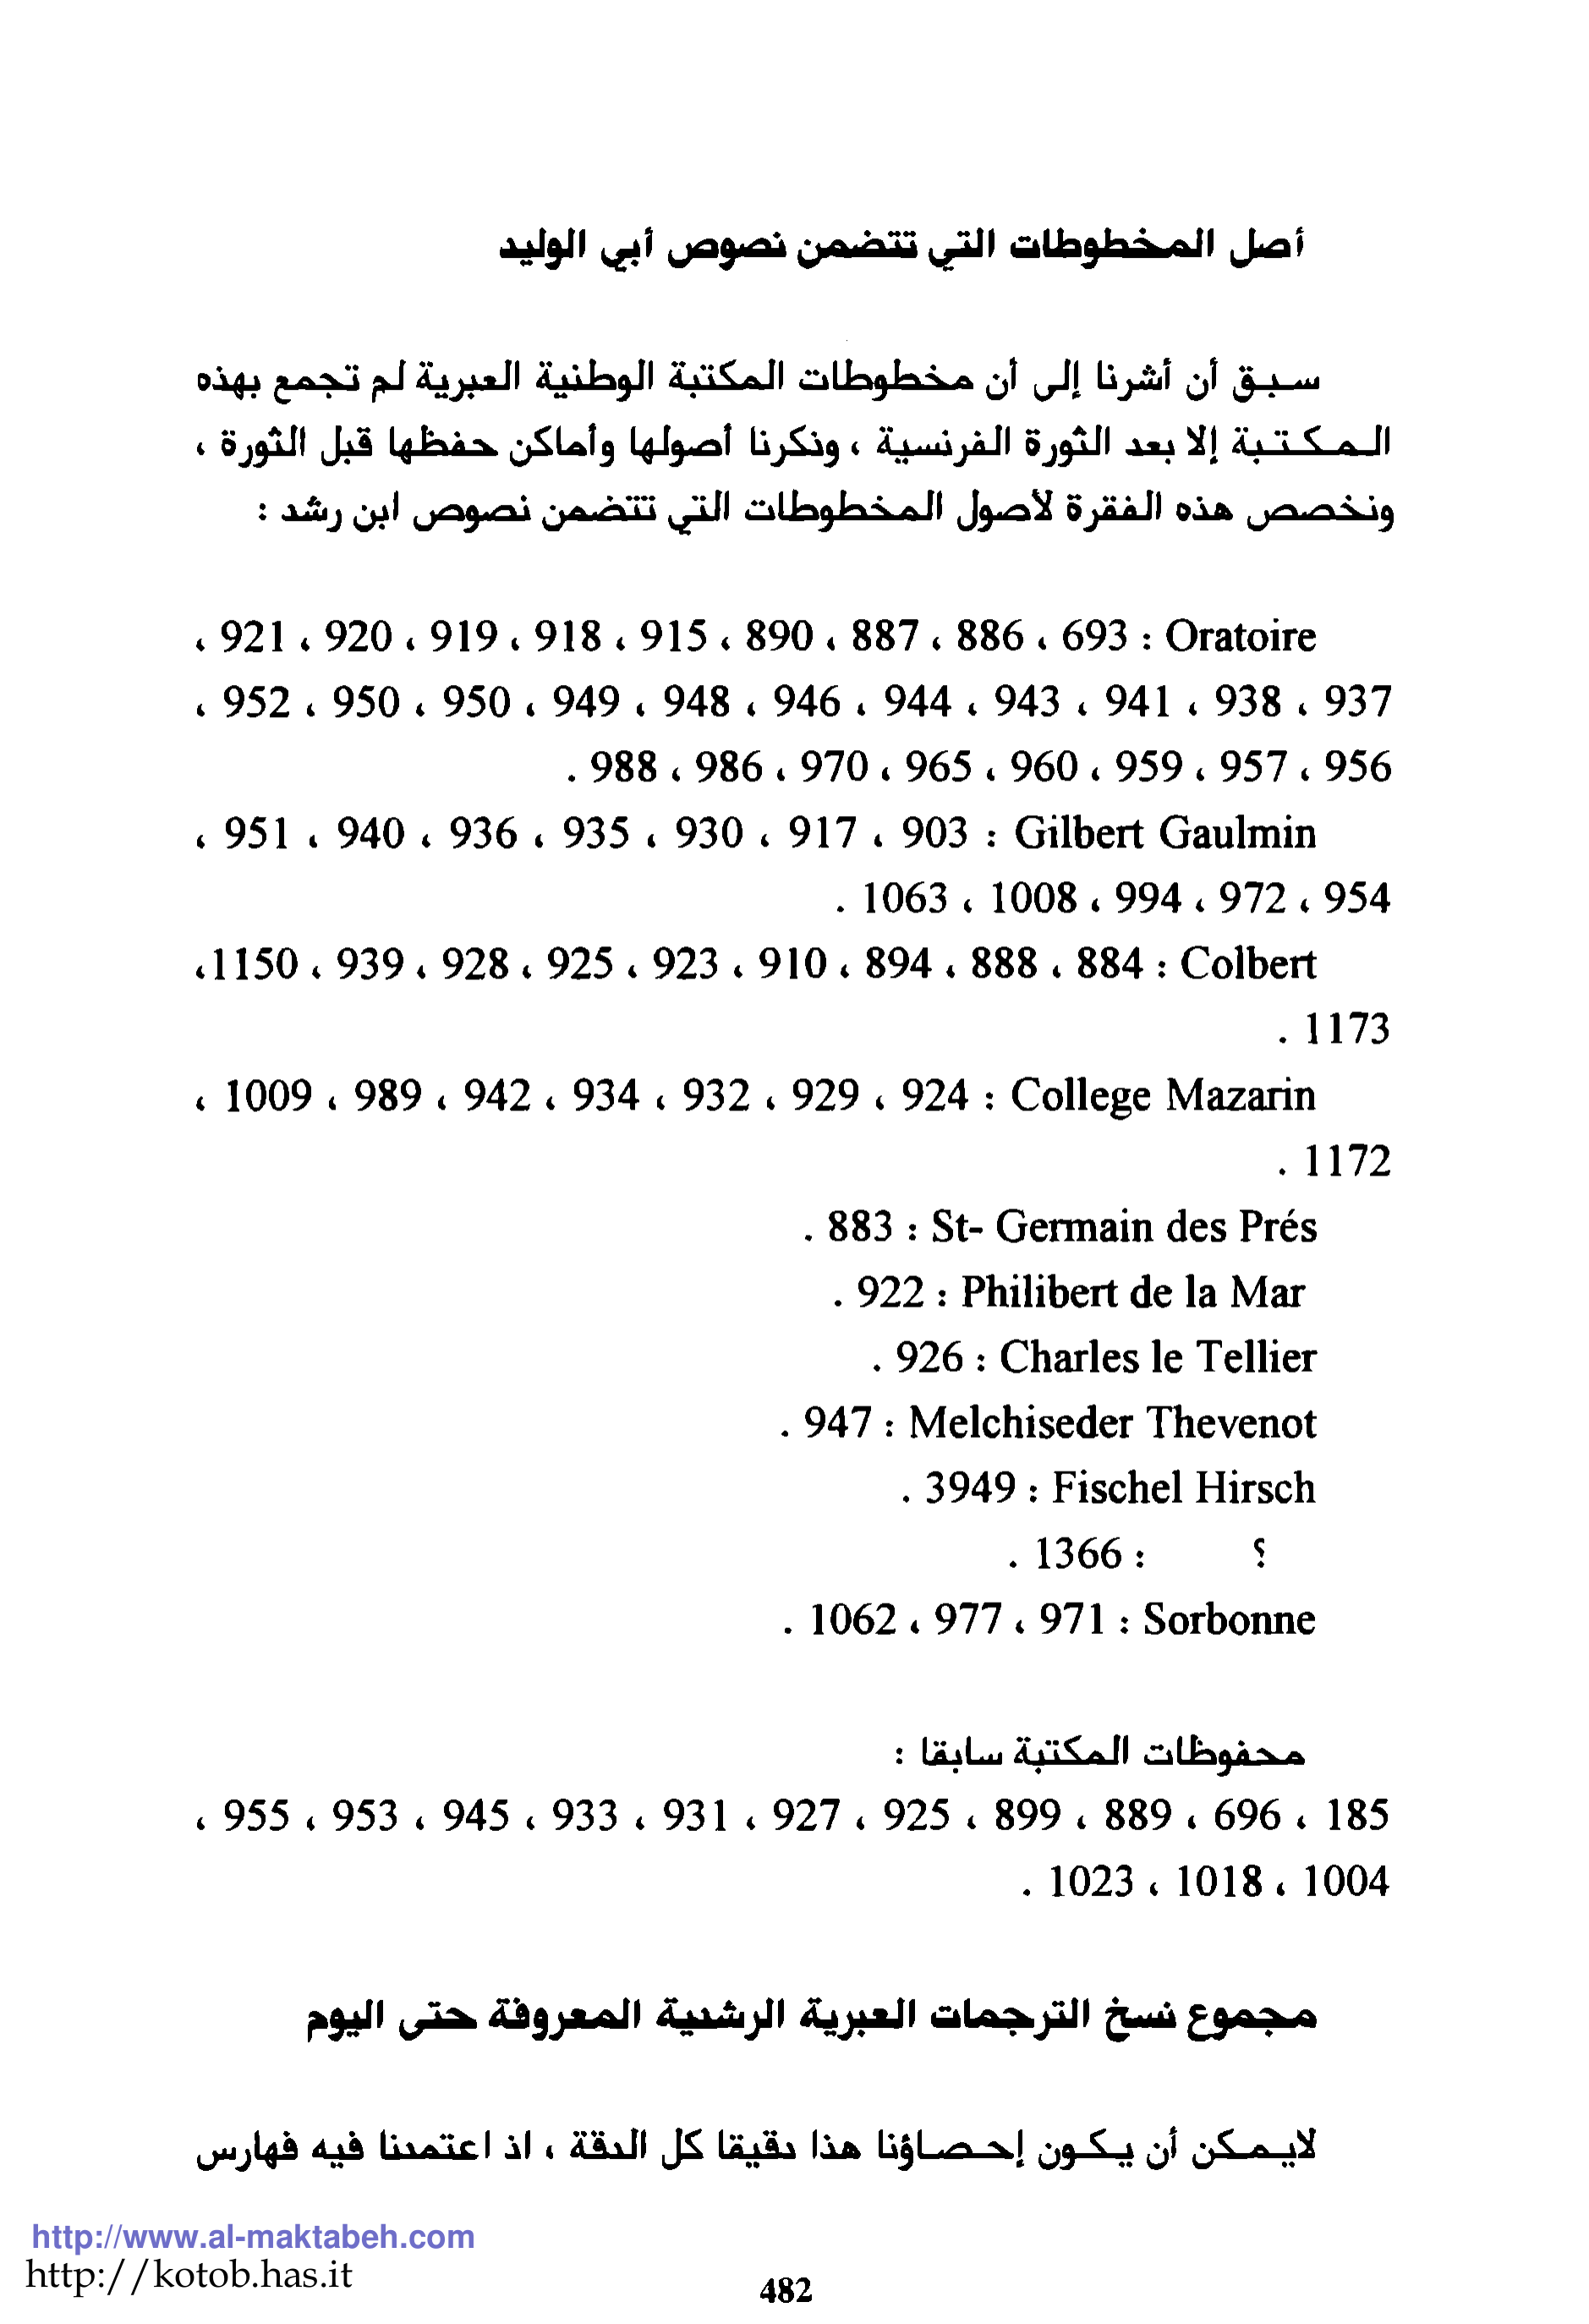 أصل المخطوطات التي تتضمن نصوص أبي الوليد
سبق أن أشرنا إلى أن مخطوطات المكتبة الوطنية العبرية لم تجمع بهذه
المكتبة إلا بعد الثورة الفرنسية ، وذكرنا أصولها وأماكن حفظها قبل الثورة ،
ونخصص هذه الفقرة لأصول المخطوطات التي تتضمن نصوص ابن رشد :
Oratoire : 693 ، 886 ، 887 ، 890 ، 915 ، 918 ، 919 ، 920 ، 921 ،
937 ، 938 ، 941 ، 943 ، 944 ، 946 ، 948 ، 949 ، 950 ، 950 ، 952 ،
956 ، 957 ، 959 ، 960 ، 965 ، 970 ، 986 ، 988 .
Gilbert Gaulmin : 903 ، 917 ، 930 ، 935 ، 936 ، 940 ، 951 ،
954 ، 972 ، 994 ، 1008 ، 1063 .
Colbert : 884 ، 888 ، 894 ، 910 ، 923 ، 925 ، 928 ، 939 ، 1150،
1173 .
College Mazarin : 924 ، 929 ، 932 ، 934 ، 942 ، 989 ، 1009 ،
1172 .
St- Germain des Prés : 883 .
Philibert de la Mar : 922 .
Charles le Tellier : 926 .
Melchiseder Thevenot : 947 .
Fischel Hirsch : 3949 .
؟ : 1366 .
Sorbonne : 971 ، 977 ، 1062 .
محفوظات المكتبة سابقا :
185 ، 696 ، 889 ، 899 ، 925 ، 927 ، 931 ، 933 ، 945 ، 953 ، 955 ،
1004 ، 1018 ، 1023 .
مجموع نسخ الترجمات العبرية الرشدية المعروفة حتى اليوم
لايمكن أن يكون إحصاؤنا هذا دقيقا كل الدقة ، اذ اعتمدنا فيه فهارس
http://www.al-maktabeh.com
http://kotob.has.it
482